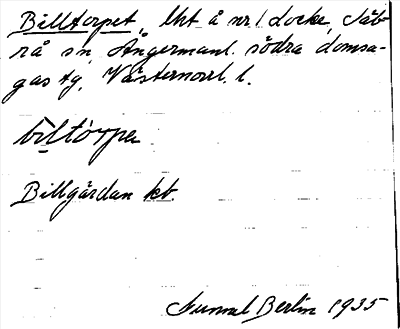 Billtorpet, lht å nr 1 Locke, Säb-
rå sn, Ångermanl. södra domsa-
gas tg, Västernorrl. l.
biltòrpe
Billgårdan kb.
Gunnal Berlin 1935